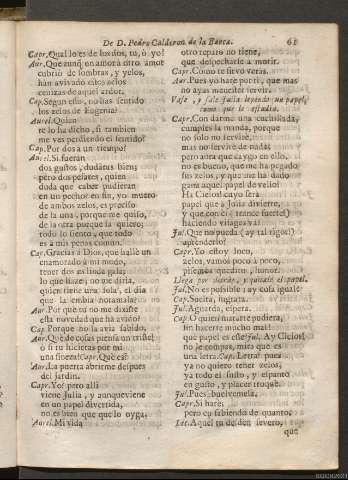 De D. Pedro Calderon de la Barca. 61
Capr. Qual lo es de los dos, tu, ò yo?
Aur. Que aunq̃ en amorà otro amor
cubriò de sombras, y yelos,
han avivado essos zelos
cenizas de aquel ardor.
Cap. Segun esso, no has sentido
los zelos de Eugenia?
Aurel. Quien
te lo ha dicho, si tambien
me ves perdiendo el sentido?
Cap. Por dos à un tiempo?
Aurel. Si fueran
dos gustos, dudaràs bien;
pero dos pesares, quien
duda que caber pudieran
en un pecho? en fin, yo muero
de ambos zelos, es preciso
de la una, porque me quiso,
de la otra porque la quiero;
todo lo siento, que todo
es à mis penas comun.
Cap. Gracias à Dios, que hallè un
enamorado à mi modo,
tener dos es linda gala;
lo que haze, no me daria,
quien tiene una sola, el dia
que la embia noramala?
Aur. Por què tu no me dixiste
esta novedad que ha avido?
Cap. Porque no la avia sabido.
Aur. Què de cosas piensa un triste!
ò si tu hicieras por mi
una fineza! Capr. Què es?
Aur. La puerta abrieme despues
del jardin.
Capr. Yo? pero alli
viene Julia, y aunque viene
en un papel divertida,
no es bien que que lo oyga.
Aurel. Mi vida
otro reparo no tiene,
que despecharse à morir.
Capr. Como te sirvo veràs.
Aur. Pues yo harè por ti, que mas
no ayas menester servir.
Vase, y sale Julia leyendo un papel,
como que le estudia.
Capr. Con darme una cuchillada,
cumples la manda, porque
no solo no servirè,
mas no servirè de nada;
pero aora que caygo en ello,
no es bueno, que me ha pegado
sus zelos, y que me ha dado
gana aquel papel de vello?
Ha Cielos! cuyo serà
papel que à Julia divierte,
y que con èl (trance fuerte!)
haciendo visages và?
Jul. Que no pueda (ay tal rigor!)
aprenderlo!
Capr. Yo estoy loco,
zelos, vamos poco à poco,
Llega por detràs, y quitale el papel.
Jul. No es possible; ay cosa igual?
Cap. Suelta, ingrata.
Jul. Aguarda, espera.
Cap. O quien matarte pudiera,
sin hacerte mucho mal!
què papel es este? Jul. Ay Cielos!
no le rompas, mira que es
una letra. Cap. Letra? pues
ya no quiero tener zelos,
ya todo el susto, y espanto
en gusto, y placer troquè.
Jul. Pues buelvemela.
Capr. Si harè;
pero en sabiendo de quanto.
Lee. Aquel tu desden severo,
que